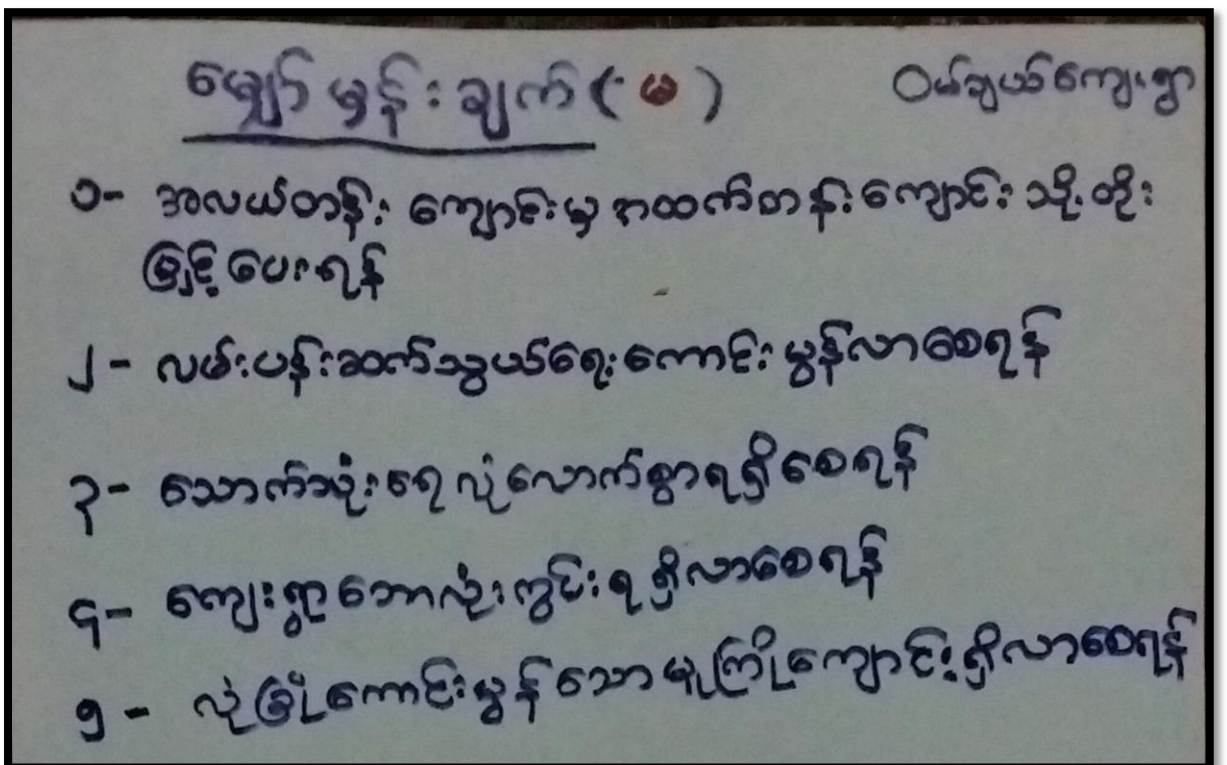 မျှော်မှန်းချက် (မ) ဝမ်ချယ်ကျေးရွာ
၁- အလယ်တန်းကျောင်းမှ အထက်တန်းကျောင်းသို့တိုး
မြှင့်ပေးရန်
၂- လမ်းပန်းဆက်သွယ်ရေးကောင်းမွန်လာစေရန်
၃- သောက်သုံးရေလုံလောက်စွာရရှိစေရန်
၄- ကျေးရွာဘောလုံးကွင်းရရှိလာစေရန်
၅- လုံခြုံကောင်းမွန်သောမူကြိုကျောင်းရှိလာစေရန်